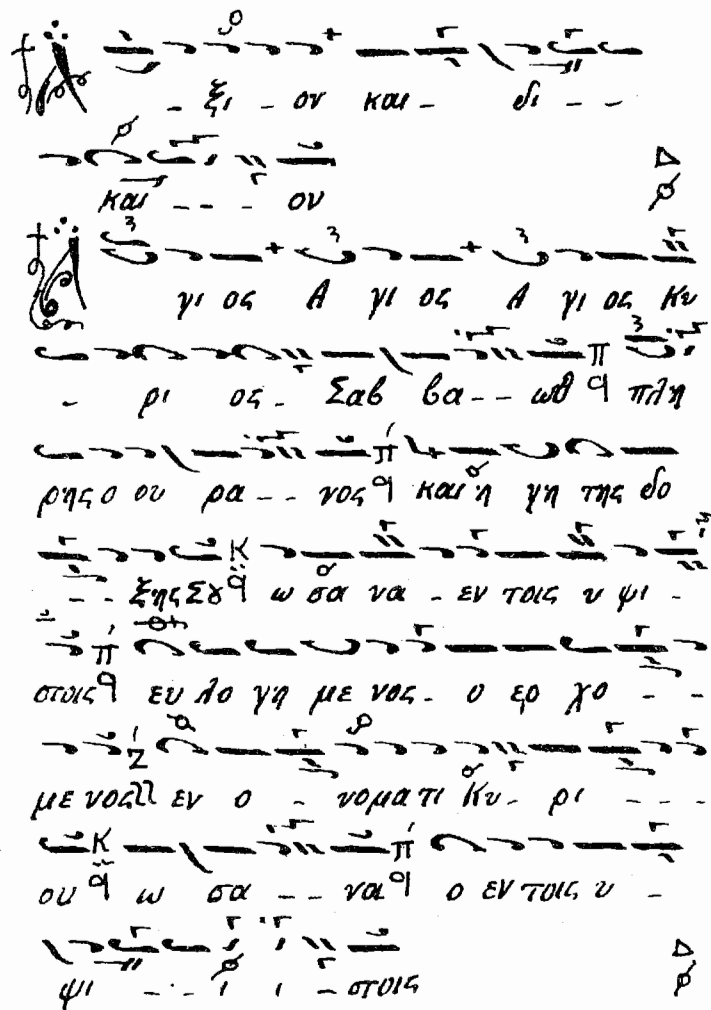 Α - ξι - ον και - δι - -
και - - - ον
Α γι ος Α γι ος Α γι ος Κυ
- ρι ος - Σαβ βα - - ωθ πλη
ρης ο ου ρα - - νος και η γη της δο
- - ξης Σου ω σα να - εν τοις υ ψι -
στοις ευ λο γη με νος - ο ερ χο - -
με νος εν ο - νοματι Κυ - ρι - - -
ου ω σα - - να ο εν τοις υ -
ψι - - ι ι - στοις